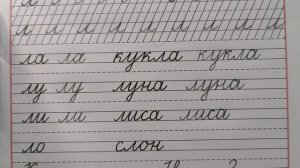 л л л л л л л л л л
ла ла кукла кукла
лу лу луна луна
ли ли лиса лиса
ло слон